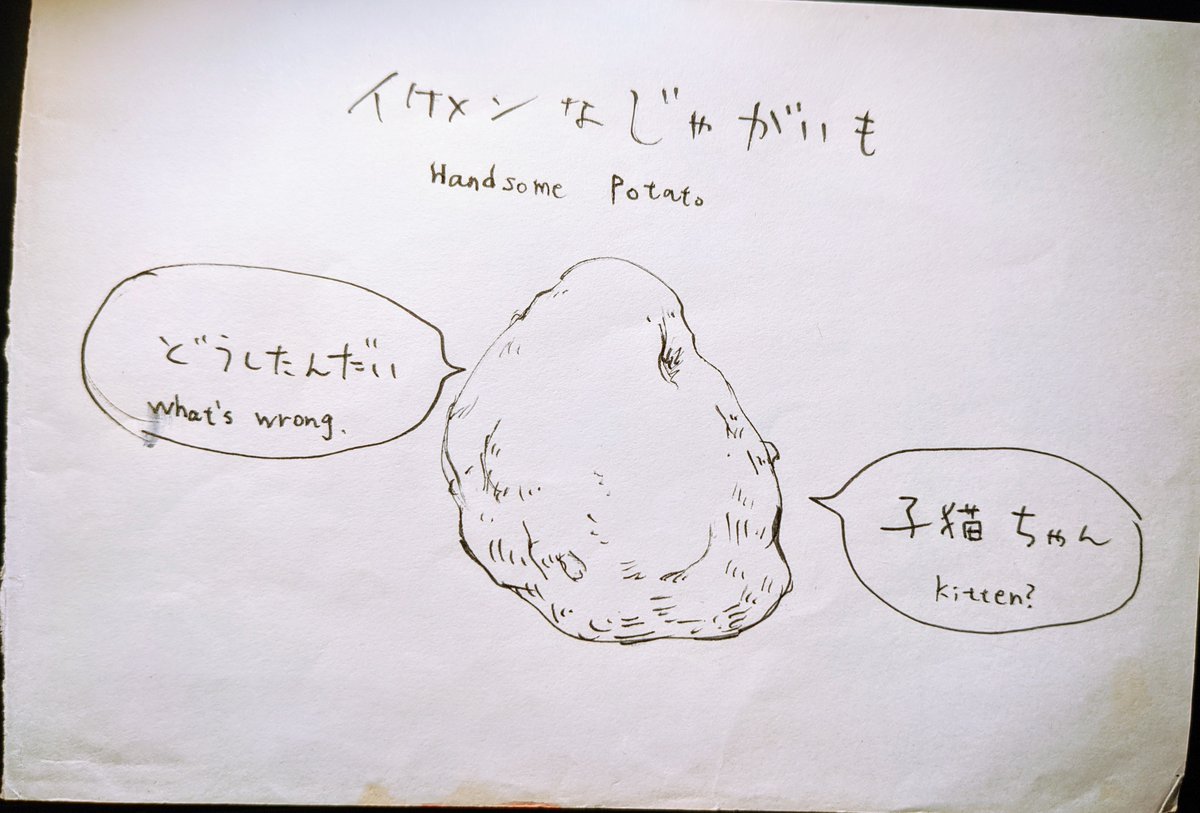 イケメンなじゃがいも
Handsome Potato
どうしたんだい
what's wrong.
子猫ちゃん
kitten?